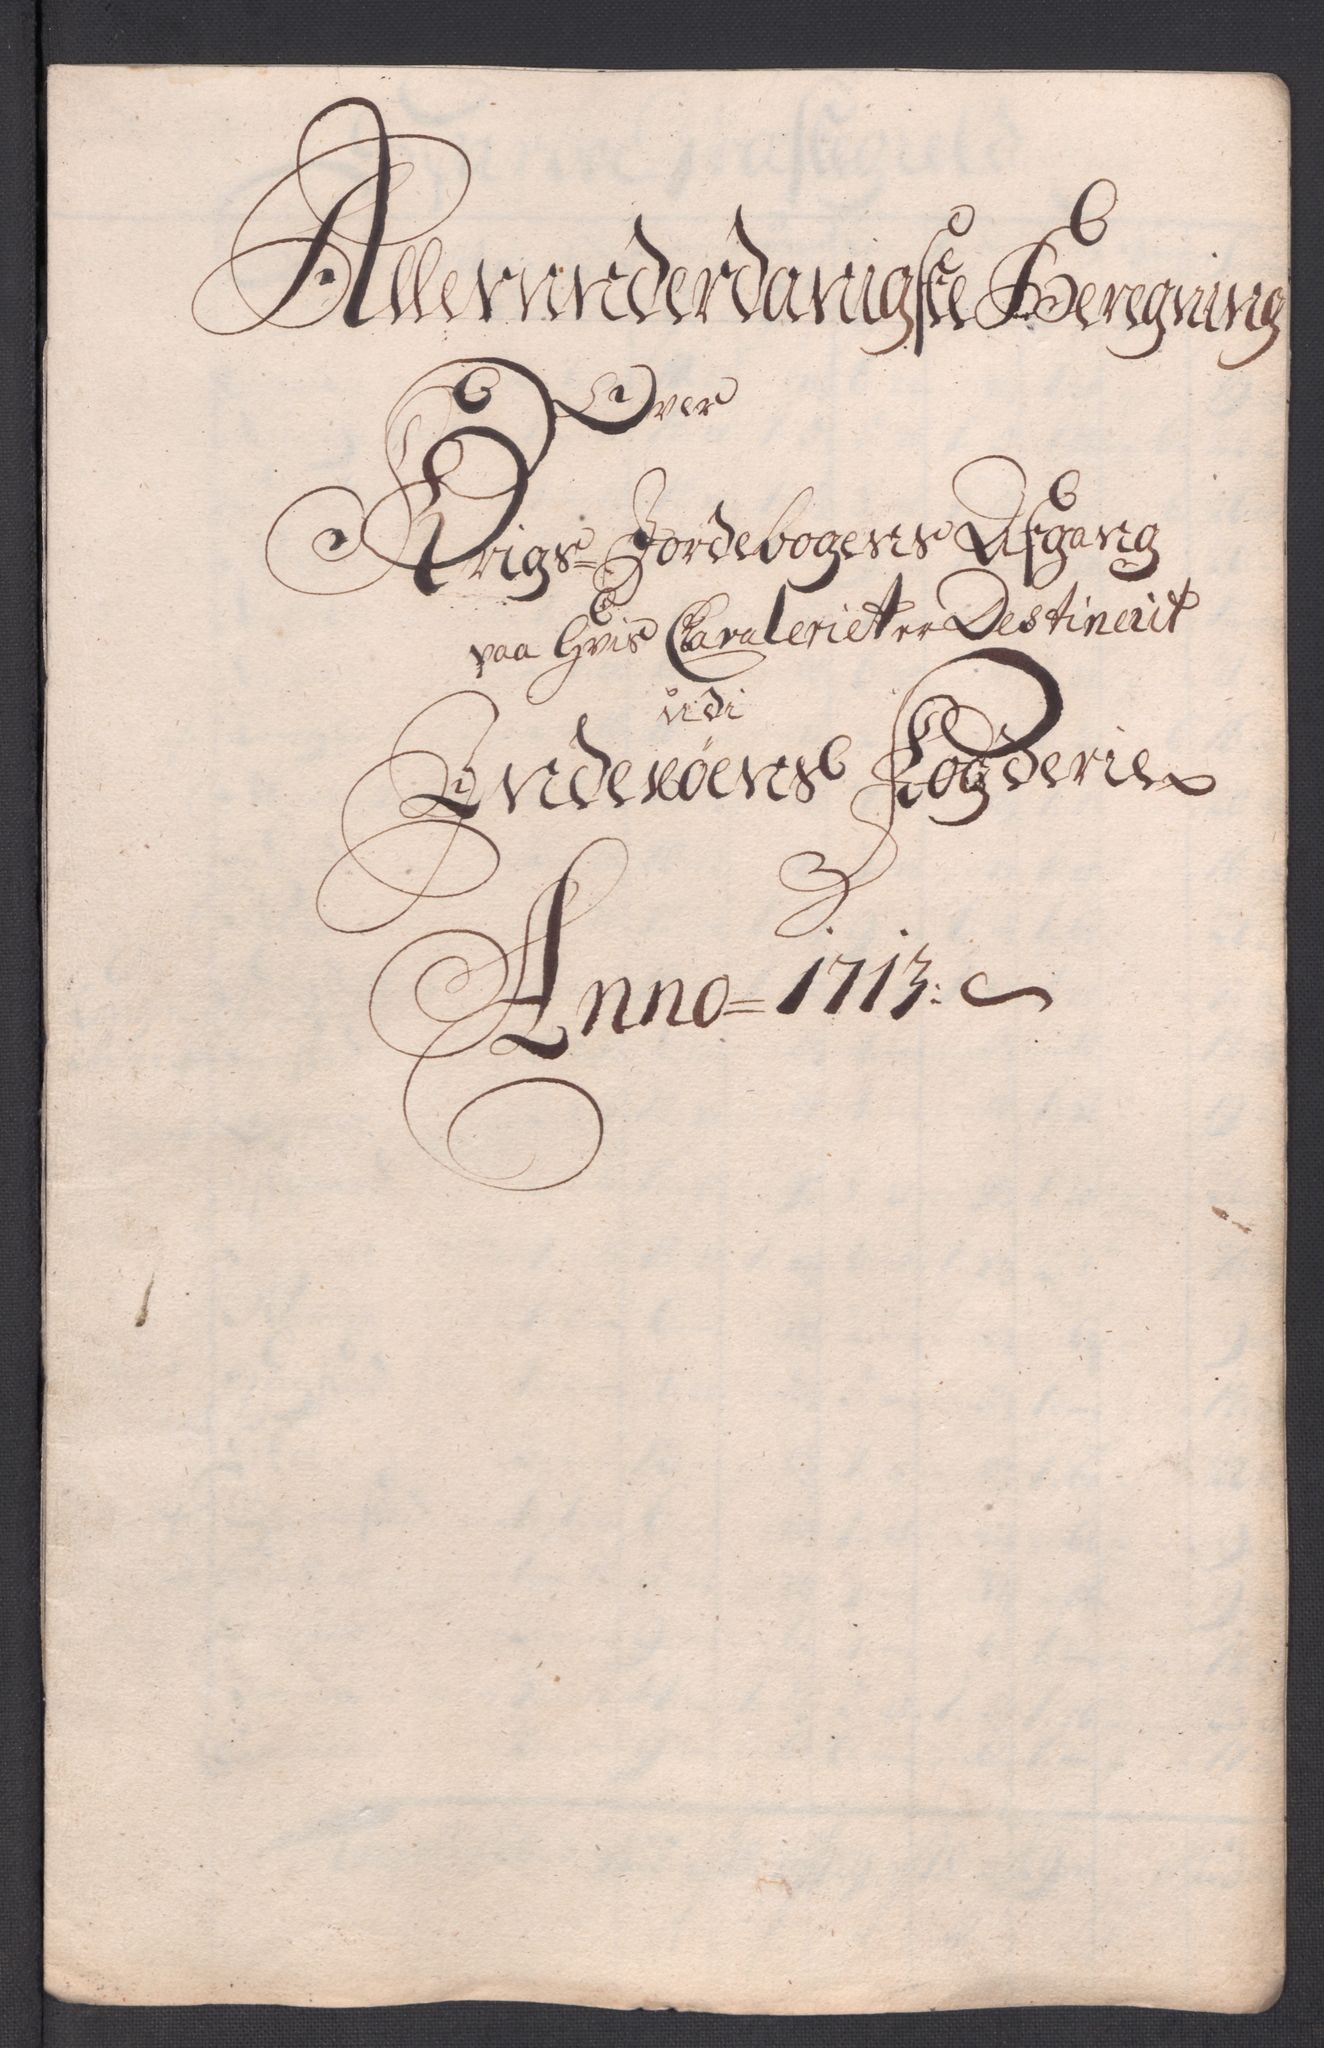 Allerunderdanigste Beregning
Over
Krigs=Jordebogens Afgang
paa Hvis Cavaleriet er Destinerit
udi
Inderøens Fogderie
Anno=1713: